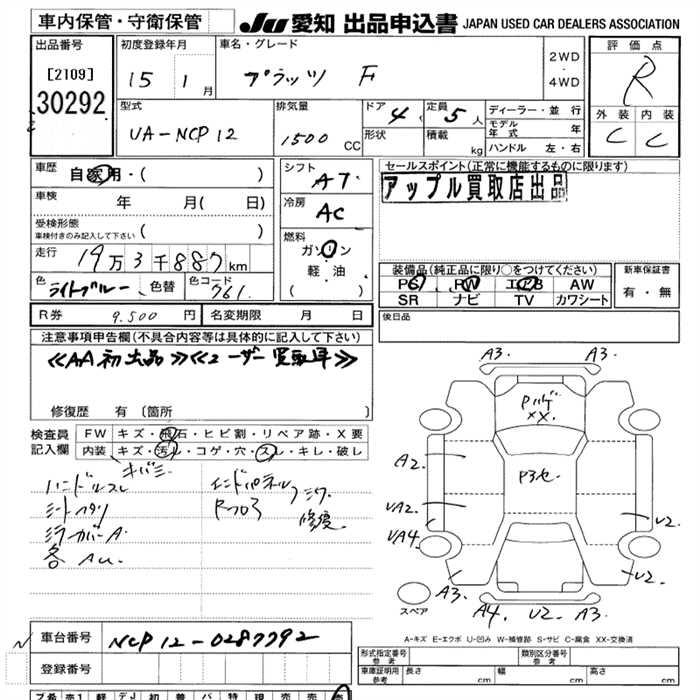 車内保管・守衛保管
JU 愛知 出品申込書 JAPAN USED CAR DEALERS ASSOCIATION
出品番号
[2109]
30292
初度登録年月
15 1 月
車名・グレード
プラッツ F
2WD
・
4WD
評価点
R
外装 内装
C C
型式
UA-NCP12
排気量
1500 CC
ドア 4 定員 5 人
形状 積載 kg
ディーラー・並 行
モデル年式 年
ハンドル 左・右
車歴
自家用・( )
車検 年 月( 日)
受検形態
車検付きのみ記入して下さい ( )
走行 19万3千887km
色 ライトブルー 色替 色コード 761
シフト
AT
冷房
AC
燃料
ガソリン
軽・油
( )
セールスポイント(正常に機能するものに限ります)
アップル買取店出品
装備品(純正品に限り○をつけてください)
PS PW エアB AW
SR ナビ TV カワシート
新車保証書
有・無
後日品
R券 9,500円 名変期限 月 日
注意事項申告欄(不具合内容等は具体的に記入して下さい)
≪AA初出品≫≪ユーザー買取車≫
修復歴 有 [箇所 ]
検査員 FW キズ・飛石・ヒビ割・リペア跡・X要
記入欄 内装 キズ・汚レ・コゲ・穴・スレ・キレ・破レ
キバミ
ハンドルスレ
シートヘタリ
ミラーカバーA
各AU
インドパネル
Rフロア
シワ
修復
A3. A3.
Pハゲ
XX.
A2.
P3セ
UA2.
UA4.
U2.
A3. U2.
A4. U2 A3.
スペア
A-キズ E-エクボ U-凹み W-補修跡 S-サビ C-腐食 XX-交換済
車台番号 NCP12-0287792
登録番号
形式指定番号 参考 類別区分番号 参考
車庫証明用 参考 長さ cm 幅 cm 高さ cm